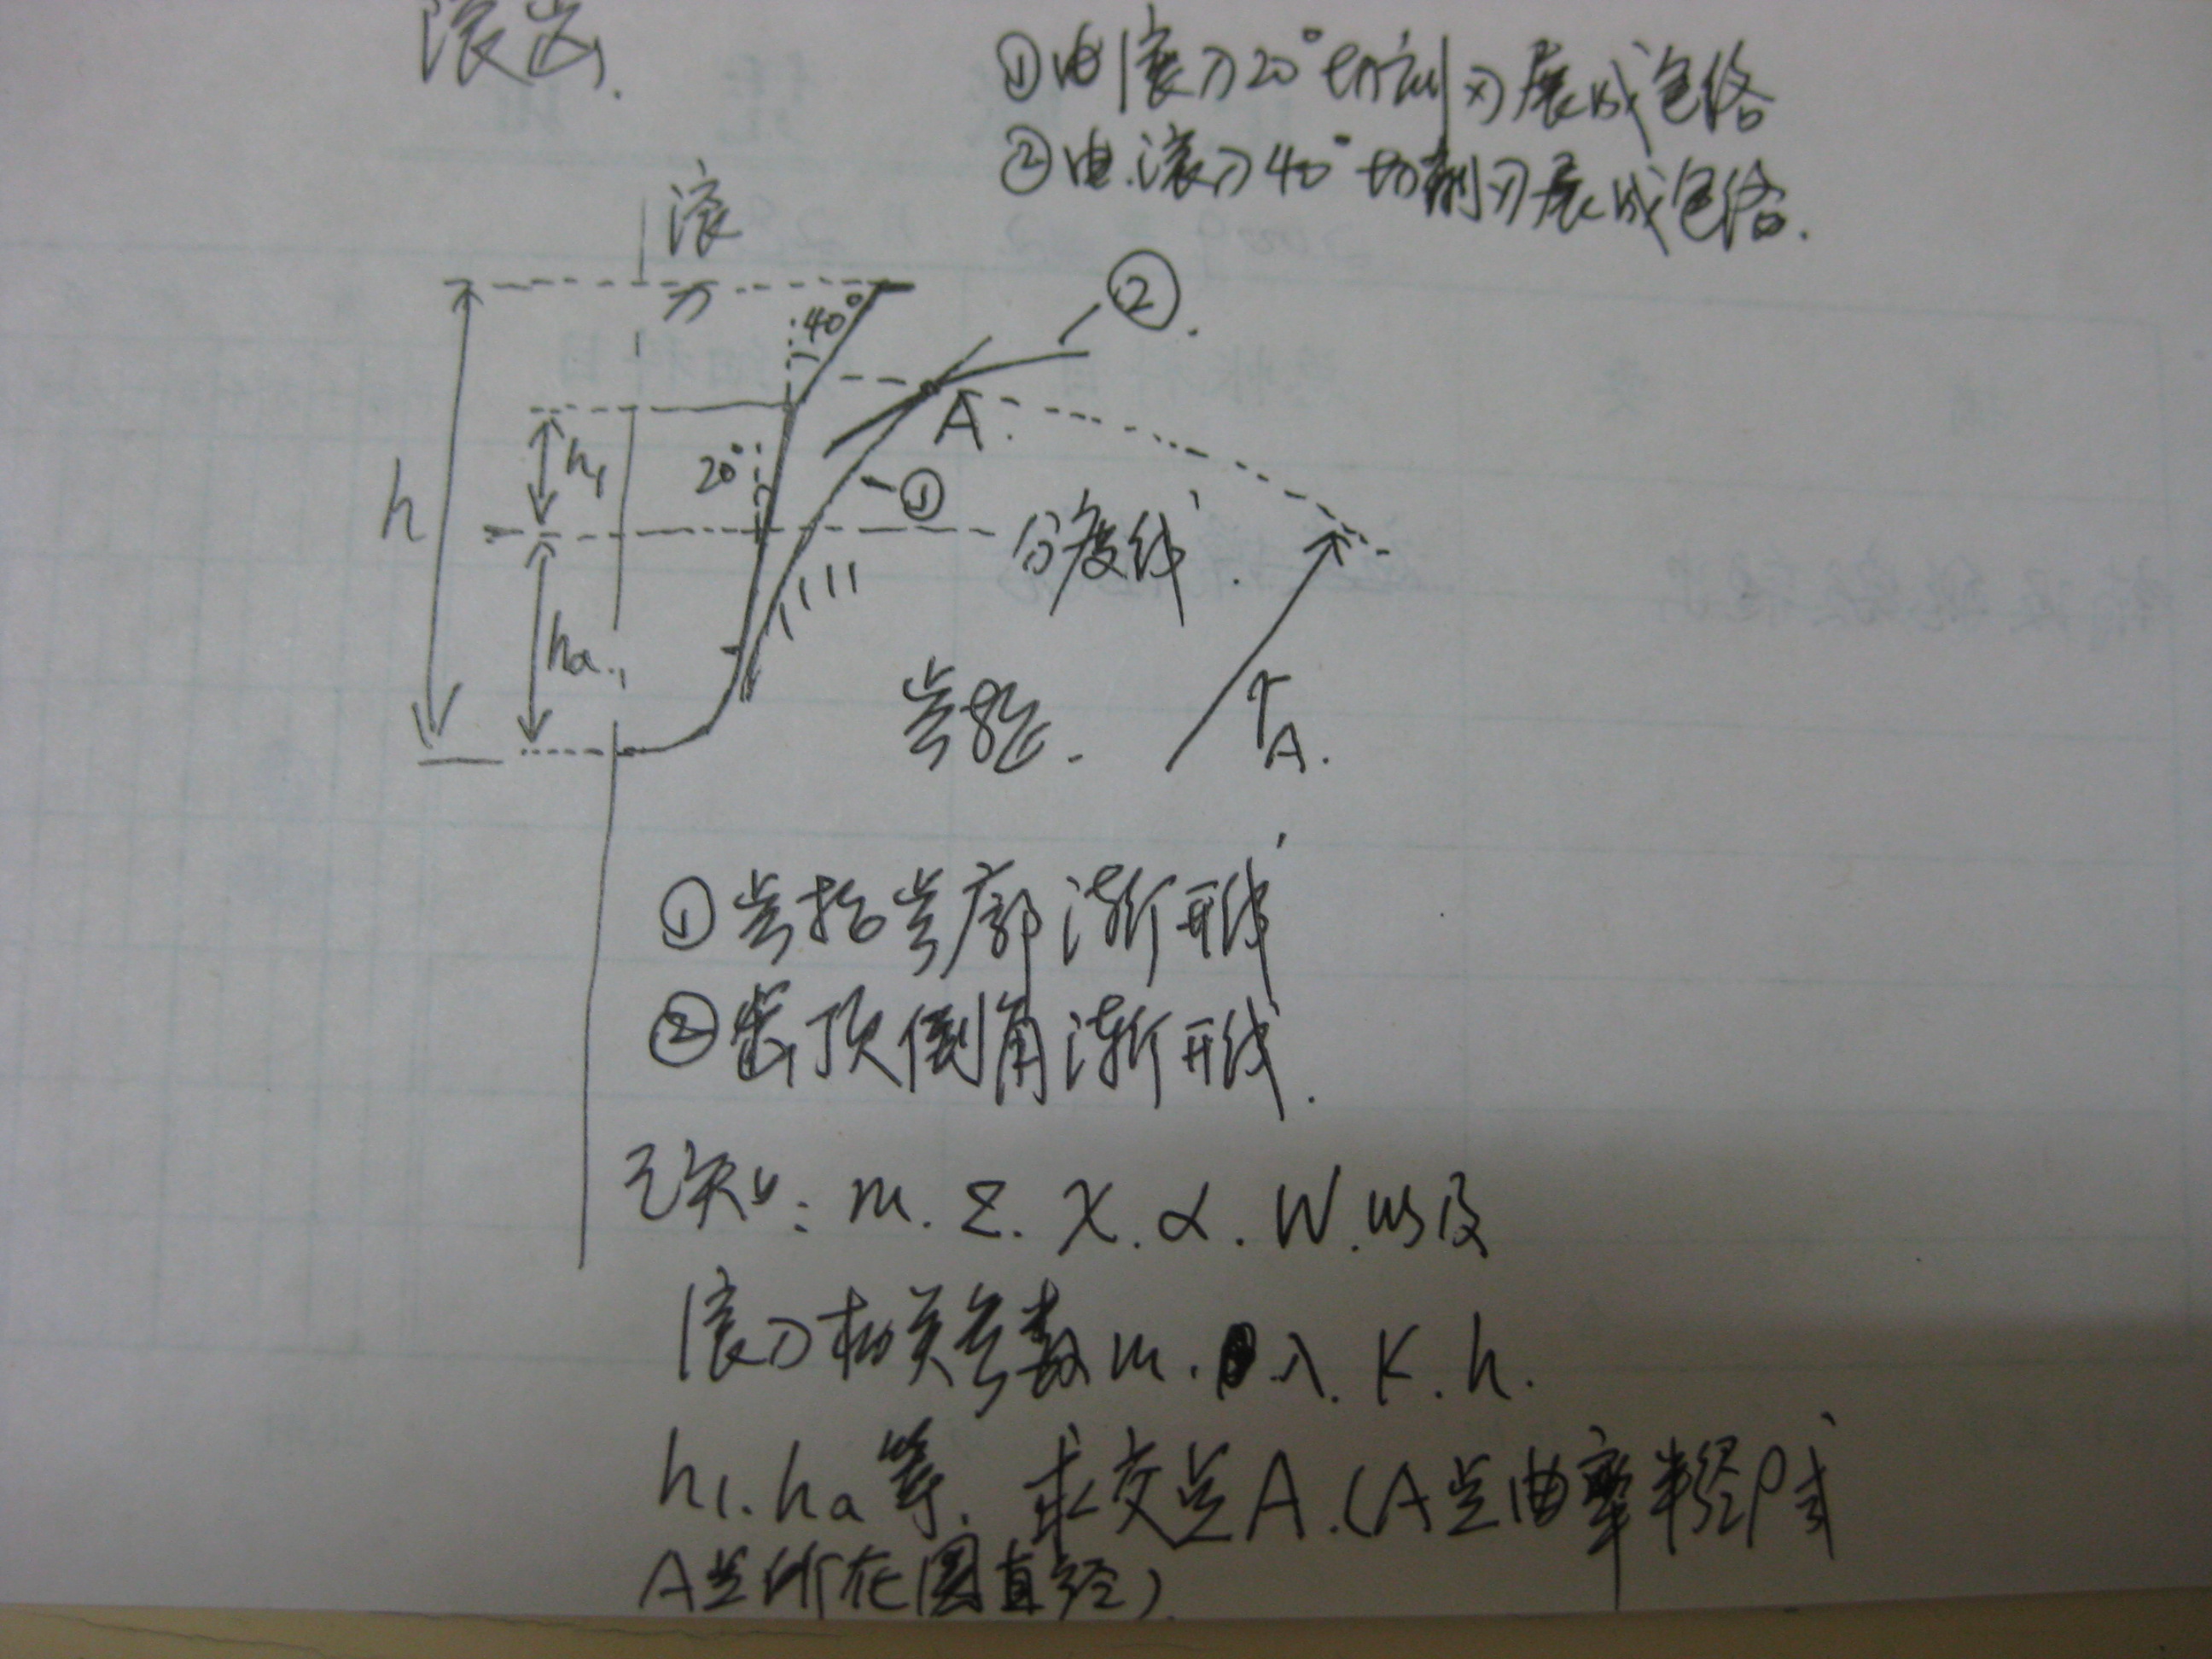 滚齿.
①由滚刀20°切削刃展成包络
②由滚刀40°切削刃展成包络.
滚
刀
40°
②
A.
h
h1
20°
①
分度线
ha
齿轮.
rA.
①齿轮齿廓渐形线
②齿顶倒角渐形线.
已知: m. z. x. α. W. 以及
滚刀相关参数 m. λ. K. h.
h1. ha 等. 求交点A.(A点曲率半径ρ或
A点所在圆直径)